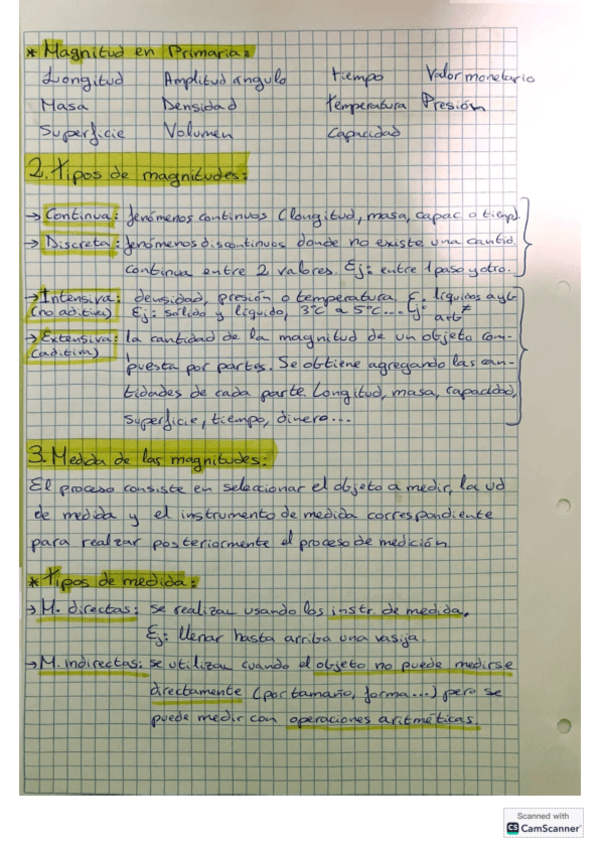 * Magnitud en Primaria:
Longitud Amplitud ángulo tiempo Valor monetario
Masa Densidad temperatura Presión
Superficie Volumen Capacidad
2. Tipos de magnitudes:
→ Continua: fenómenos continuos (longitud, masa, capac. o tiemp)
→ Discreta: fenómenos discontinuos donde no existe una cantid.
continua entre 2 valores. Ej: entre 1 paso y otro.
→ Intensiva: densidad, presión o temperatura. Ej: líquidos a y b
(no aditiva) Ej: sólido y líquido, 3°C a 5°C... a+b ≠
→ Extensiva: la cantidad de la magnitud de un objeto com-
(aditiva) puesta por partes. Se obtiene agregando las can-
tidades de cada parte. Longitud, masa, capacidad,
superficie, tiempo, dinero...
3. Medida de las magnitudes:
El proceso consiste en seleccionar el objeto a medir, la ud
de medida y el instrumento de medida correspondiente
para realizar posteriormente el proceso de medición.
* Tipos de medida:
→ M. directas: se realizan usando los instr. de medida.
Ej: llenar hasta arriba una vasija.
→ M. indirectas: se utilizan cuando el objeto no puede medirse
directamente (por tamaño, forma...) pero se
puede medir con operaciones aritméticas.
Scanned with
CS CamScanner